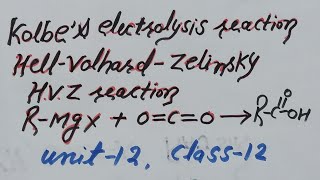 Kolbe's electrolysis reaction
Hell-Volhard-Zelinsky
H.V.Z reaction
R-Mgx + O=C=O → R-C(=O)-OH
unit-12, class-12